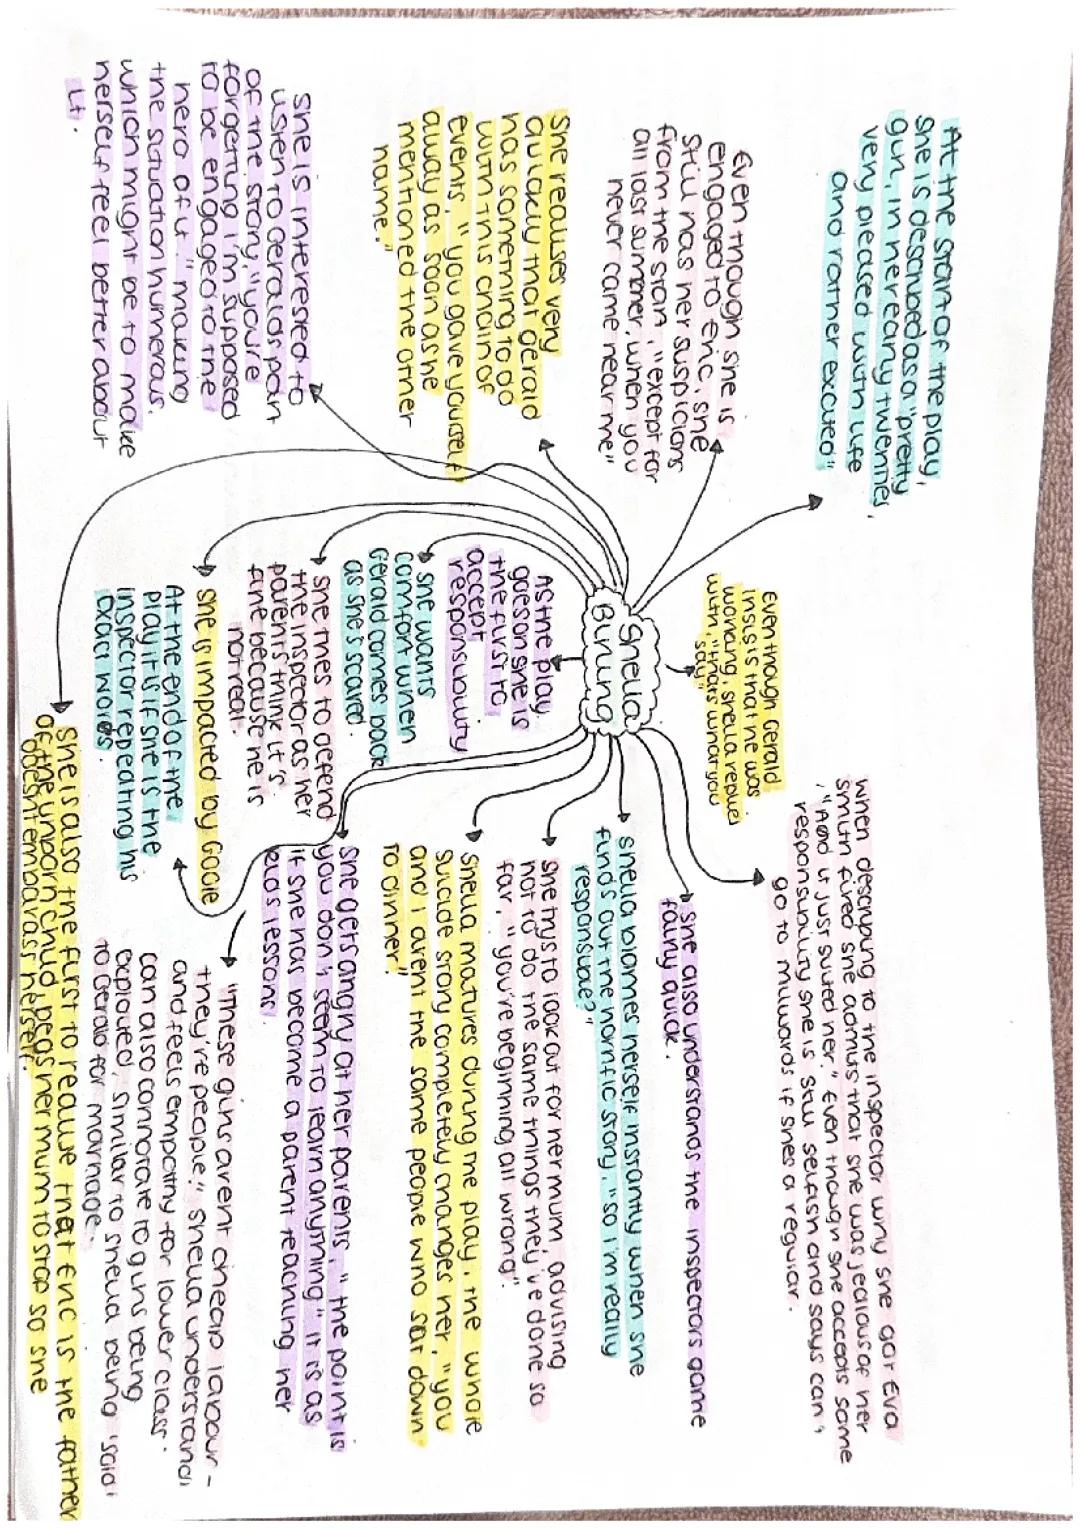 Sheila
Birling
At the start of the play,
she is described as a "pretty
girl, in her early twenties,
very pleased with life
and rather excited"
Even though she is
engaged to Eric, she
still has her suspicions
from the start, "except for
all last summer, when you
never came near me"
She realises very
quickly that Gerald
has something to do
with this chain of
events, "you gave yourself
away as soon as he
mentioned the other
name."
She is interested to
listen to Geralds part
of the story, "you're
forgetting I'm supposed
to be engaged to the
hero of it." making
the situation humerous.
which might be to make
herself feel better about
it.
Even though Gerald
insists that he was
working, Sheila replies
with, "thats what you
say"
As the play
goes on she is
the first to
accept
responsibility
She wants
comfort when
Gerald comes back
as she's scared.
She tries to defend
the inspector as her
parents think it's
fine because he is
not real.
She is impacted by Goole
At the end of the
play it is if she is the
inspector repeating his
exact words.
When describing to the inspector why she got Eva
Smith fired she admits that she was jealous of her
, "And it just suited her." Even though she accepts some
responsibility she is still selfish and says can't
go to Milwards if she's a regular.
She also understands the inspectors game
fairly quick.
Sheila blames herself instantly when she
finds out the horrific story. "So I'm really
responsible?"
She trys to look out for her mum, advising
not to do the same things they've done so
far, "you're beginning all wrong".
Sheila matures during the play, the whole
suicide story completely changes her, "you
and I arent the same people who sat down
to dinner"
She gets angry at her parents, "the point is
you don't seem to learn anything" it is as
if she has become a parent teaching her
kids lessons.
"These girls arent cheap labour -
they're people." Sheila understands
and feels empathy for lower class.
can also connotate to girls being
exploited, similar to Sheila being 'sold'
to Gerald for marriage.
She is also the first to realise that Eric is the father
of the unborn child, begs her mum to stop so she
doesnt embarass herself.